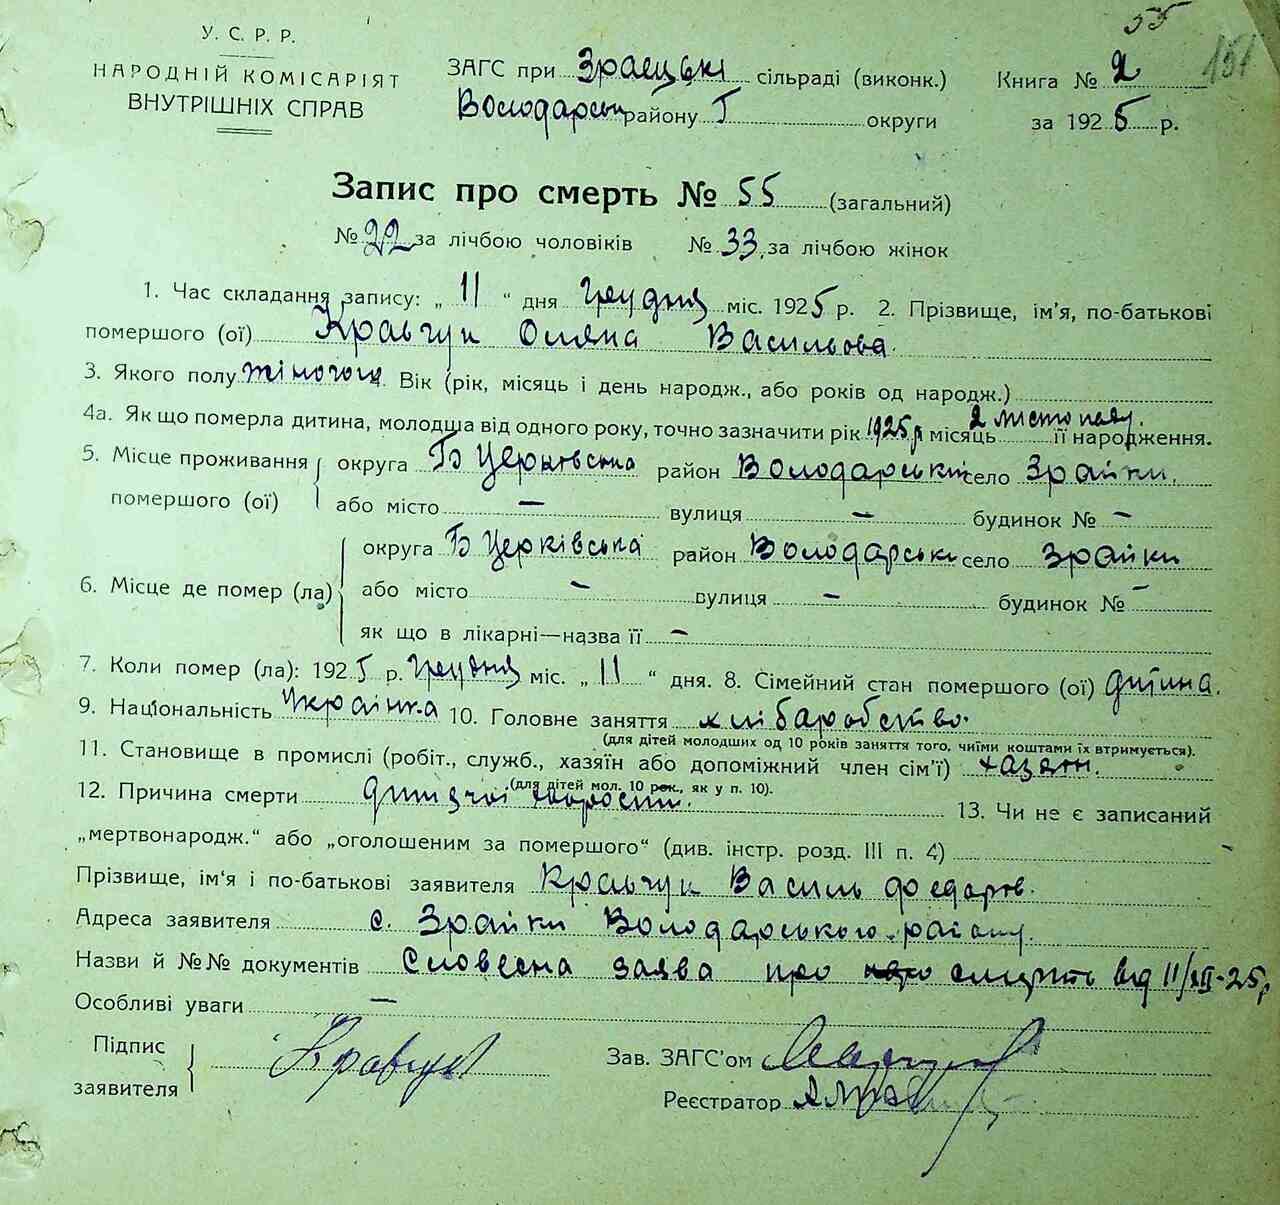 55
151
У. С. Р. Р.
НАРОДНІЙ КОМІСАРІЯТ
ВНУТРІШНІХ СПРАВ
ЗАГС при Зраєцькі сільраді (виконк.)
Володарськ району Г округи
Книга № 2
за 1925 р.
Запис про смерть № 55 (загальний)
№ 22 за лічбою чоловіків № 33 за лічбою жінок
1. Час складання запису: „ 11 “ дня Грудня міс. 1925 р. 2. Прізвище, ім'я, по-батькові
помершого (ої) Кравчук Оляна Васильова
3. Якого полу жіночого Вік (рік, місяць і день народж., або років од народж.)
4а. Як що померла дитина, молодша від одного року, точно зазначити рік 1925 р місяць 2 листопаду її народження.
5. Місце проживання помершого (ої) округа Б Церківська район Володарський село Зрайки.
або місто — вулиця — будинок № —
6. Місце де помер (ла) округа Б Церківська район Володарськ село Зрайки
або місто — вулиця — будинок № —
як що в лікарні—назва її —
7. Коли помер (ла): 1925 р. Грудня міс. „ 11 “ дня. 8. Сімейний стан помершого (ої) дитина.
9. Національність Українка 10. Головне заняття хлібаробство.
(для дітей молодших од 10 років заняття того, чиїми коштами їх втримується).
11. Становище в промислі (робіт., служб., хазяїн або допоміжний член сім'ї) хазяін.
(для дітей мол. 10 рок., як у п. 10).
12. Причина смерти дитячої 13. Чи не є записаний
„мертвонародж.“ або „оголошеним за помершого“ (див. інстр. розд. III п. 4)
Прізвище, ім'я і по-батькові заявителя Кравчук Василь
Адреса заявителя с. Зрайки Володарського району.
Назви й №№ документів Словесна заява про смерть від 11/XII-25р
Особливі уваги —
Підпис заявителя Кравчук
Зав. ЗАГС'ом
Реєстратор